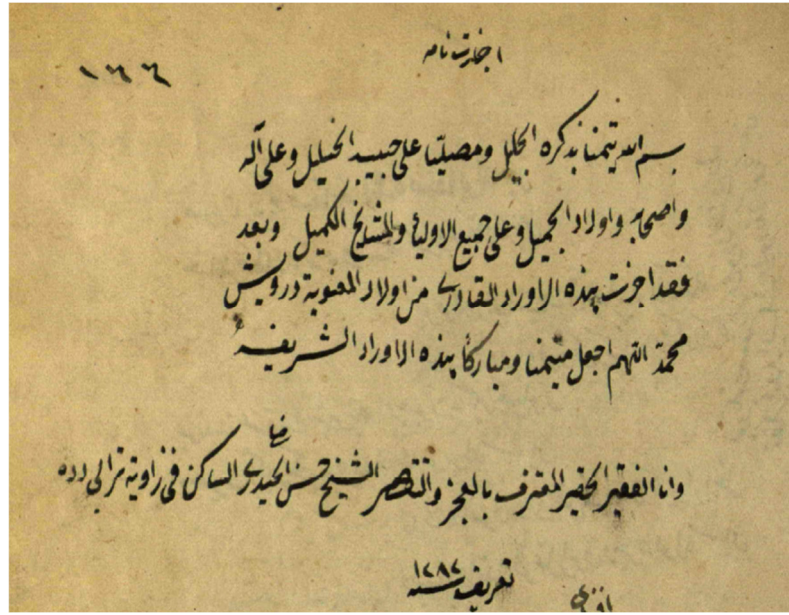 اجازتنامه
١٦٦
بسم الله تيمنا بذكره الجليل ومصليا على حبيبه الخليل وعلى آله
واصحابه واولاد الجميل وعلى جميع الاولياء والمشايخ الكميل وبعد
فقد اجزت بهذه الاوراد القادرى من اولاد المعنوية درويش
محمد اللهم اجعل متيمنا ومباركا بهذه الاوراد الشريفه
وانا الفقير الحقير المعترف بالعجز والتقصير الشيخ حسن رضا الحيدرى الساكن فى زاوية ترابى دده
سنه ١٢٨٢